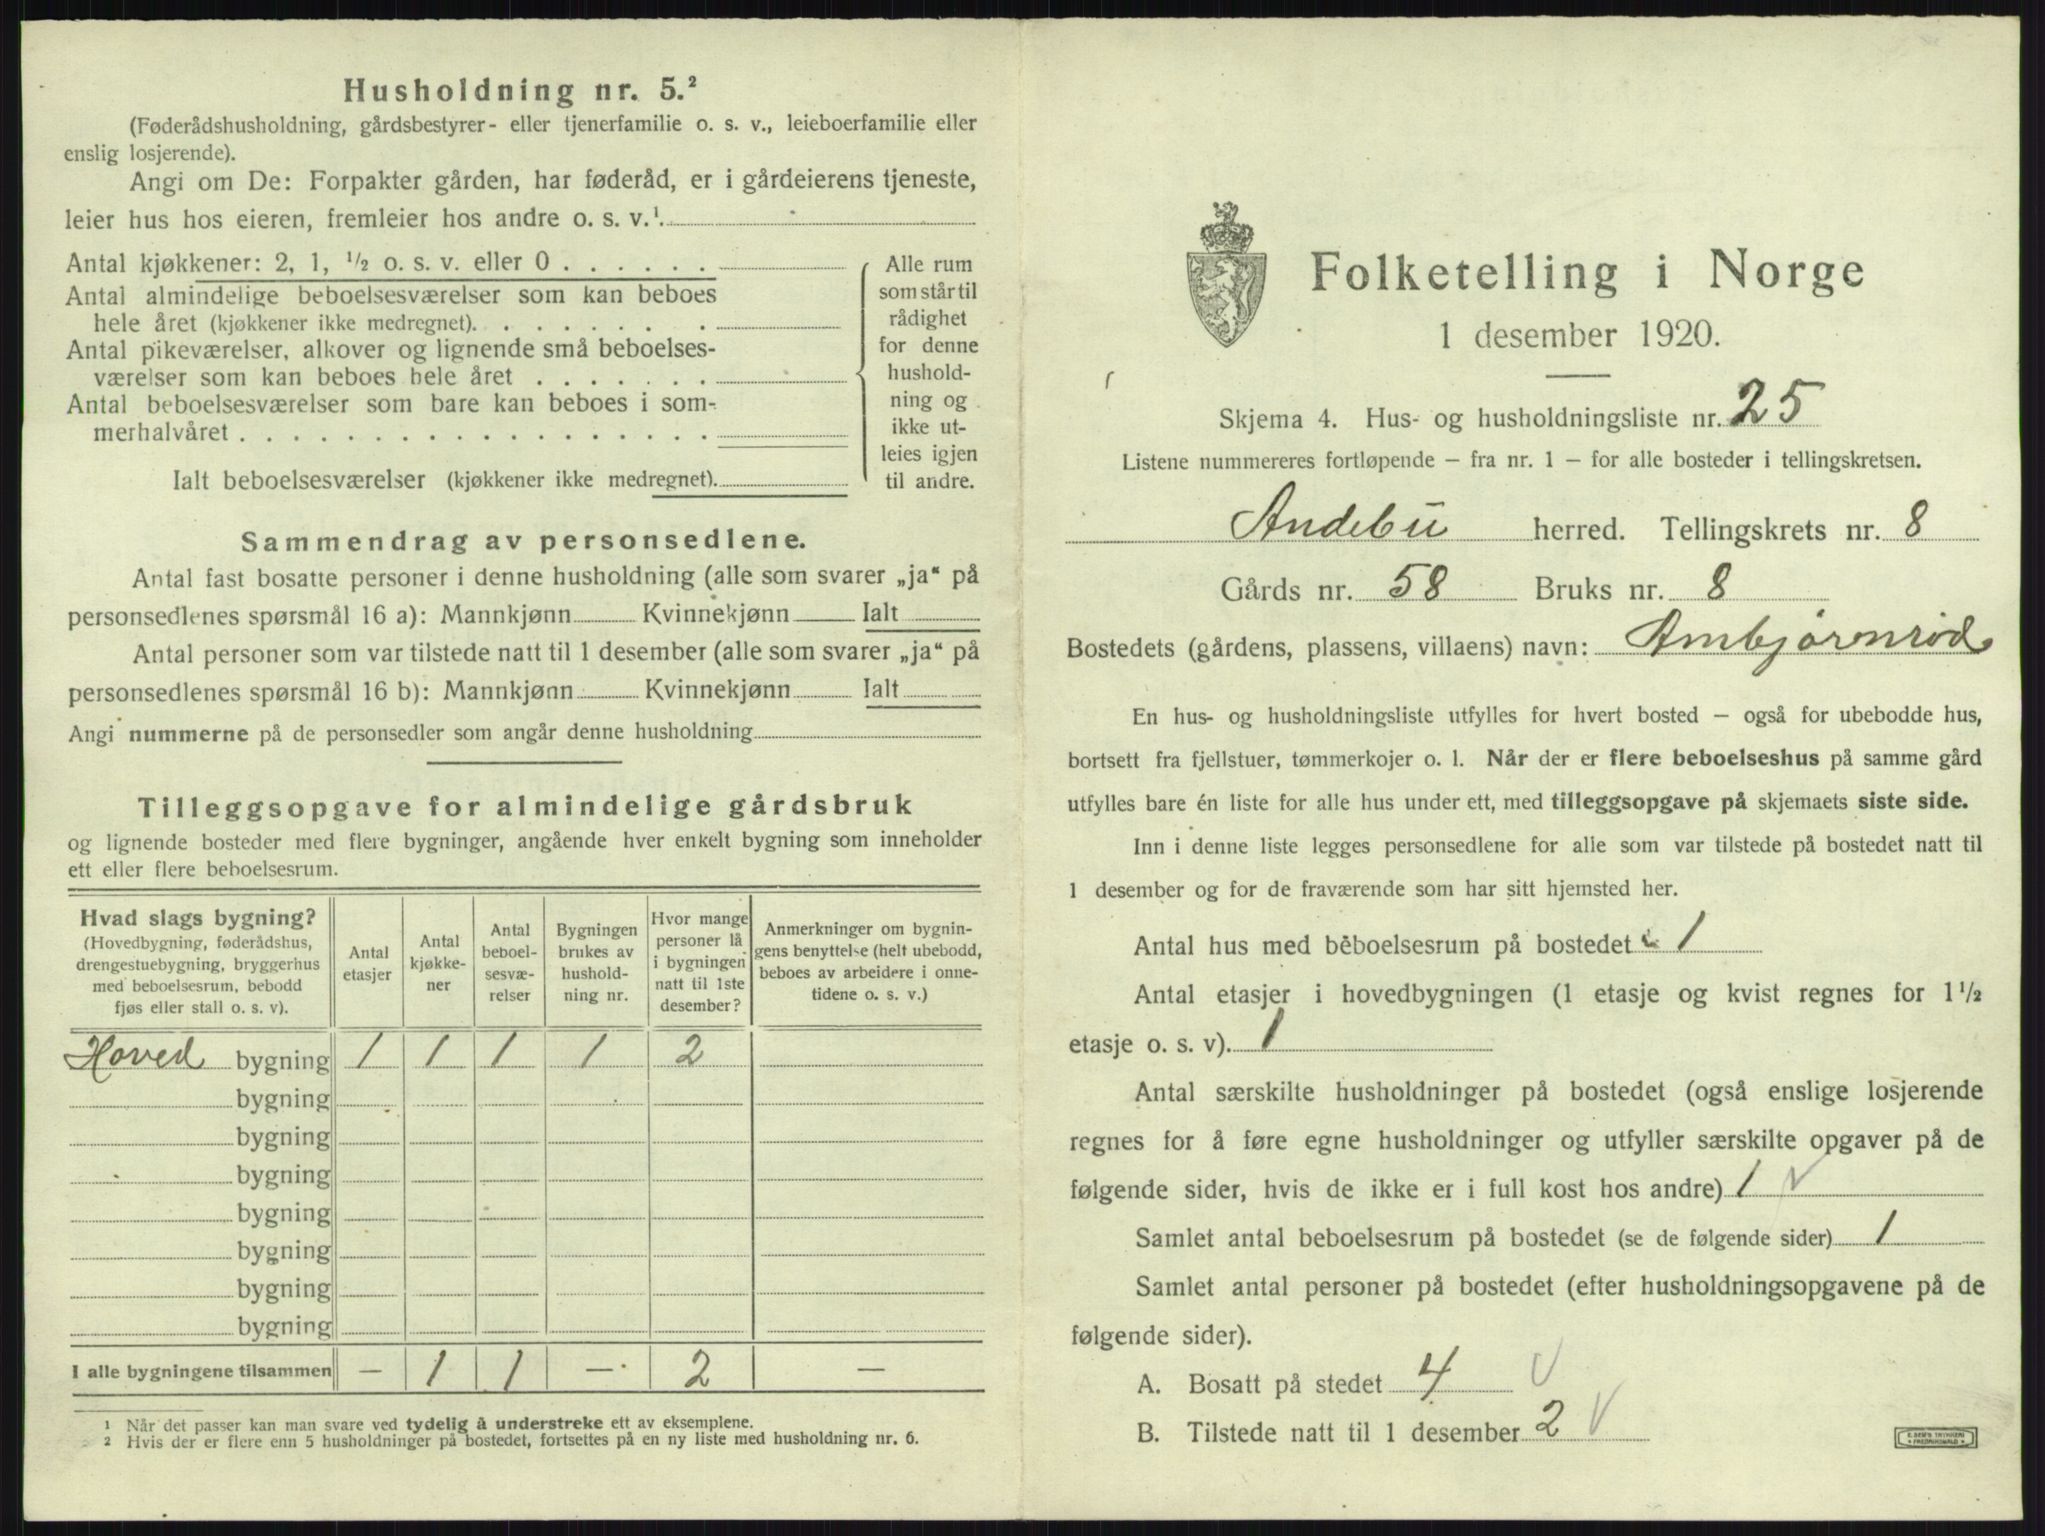 Husholdning nr. 5.²
(Føderådshusholdning, gårdsbestyrer- eller tjenerfamilie o. s. v., leieboerfamilie eller
enslig losjerende).
Angi om De: Forpakter gården, har føderåd, er i gårdeierens tjeneste,
leier hus hos eieren, fremleier hos andre o. s. v.¹.
Antal kjøkkener: 2, 1, ½ o. s. v. eller 0 . . . . . .
Antal almindelige beboelsesværelser som kan beboes
hele året (kjøkkener ikke medregnet). . . . . . . .
Antal pikeværelser, alkover og lignende små beboelses-
værelser som kan beboes hele året . . . . . . .
Antal beboelsesværelser som bare kan beboes i som-
merhalvåret . . . . . . . . . . . . . . . . . .
Ialt beboelsesværelser (kjøkkener ikke medregnet).
Alle rum
som står til
rådighet
for denne
hushold-
ning og
ikke ut-
leies igjen
til andre.
Sammendrag av personsedlene.
Antal fast bosatte personer i denne husholdning (alle som svarer „ja“ på
personsedlenes spørsmål 16 a): Mannkjønn Kvinnekjønn Ialt
Antal personer som var tilstede natt til 1 desember (alle som svarer „ja“ på
personsedlenes spørsmål 16 b): Mannkjønn Kvinnekjønn Ialt
Angi nummerne på de personsedler som angår denne husholdning
Tilleggsopgave for almindelige gårdsbruk
og lignende bosteder med flere bygninger, angående hver enkelt bygning som inneholder
ett eller flere beboelsesrum.
Hvad slags bygning?
(Hovedbygning, føderådshus,
drengestuebygning, bryggerhus
med beboelsesrum, bebodd
fjøs eller stall o. s. v).
Antal
etasjer
Antal
kjøkke-
ner
Antal
beboel-
sesvæ-
relser
Bygningen
brukes av
hushold-
ning nr.
Hvor mange
personer lå
i bygningen
natt til 1ste
desember?
Anmerkninger om bygnin-
gens benyttelse (helt ubebodd,
beboes av arbeidere i onne-
tidene o. s. v.)
Hoved bygning 1 1 1 1 2
bygning
bygning
bygning
bygning
bygning
bygning
bygning
I alle bygningene tilsammen — 1 1 — 2 —
¹ Når det passer kan man svare ved tydelig å understreke ett av eksemplene.
² Hvis der er flere enn 5 husholdninger på bostedet, fortsettes på en ny liste med husholdning nr. 6.
Folketelling i Norge
1 desember 1920.
Skjema 4. Hus- og husholdningsliste nr. 25
Listene nummereres fortløpende – fra nr. 1 – for alle bosteder i tellingskretsen.
Andebu herred. Tellingskrets nr. 8
Gårds nr. 58 Bruks nr. 8
Bostedets (gårdens, plassens, villaens) navn: Ambjørnrød
En hus- og husholdningsliste utfylles for hvert bosted – også for ubebodde hus,
bortsett fra fjellstuer, tømmerkojer o. l. Når der er flere beboelseshus på samme gård
utfylles bare én liste for alle hus under ett, med tilleggsopgave på skjemaets siste side.
Inn i denne liste legges personsedlene for alle som var tilstede på bostedet natt til
1 desember og for de fraværende som har sitt hjemsted her.
Antal hus med beboelsesrum på bostedet 1
Antal etasjer i hovedbygningen (1 etasje og kvist regnes for 1½
etasje o. s. v). 1
Antal særskilte husholdninger på bostedet (også enslige losjerende
regnes for å føre egne husholdninger og utfyller særskilte opgaver på de
følgende sider, hvis de ikke er i full kost hos andre) 1 V
Samlet antal beboelsesrum på bostedet (se de følgende sider) 1
Samlet antal personer på bostedet (efter husholdningsopgavene på de
følgende sider).
A. Bosatt på stedet 4 V
B. Tilstede natt til 1 desember 2 V